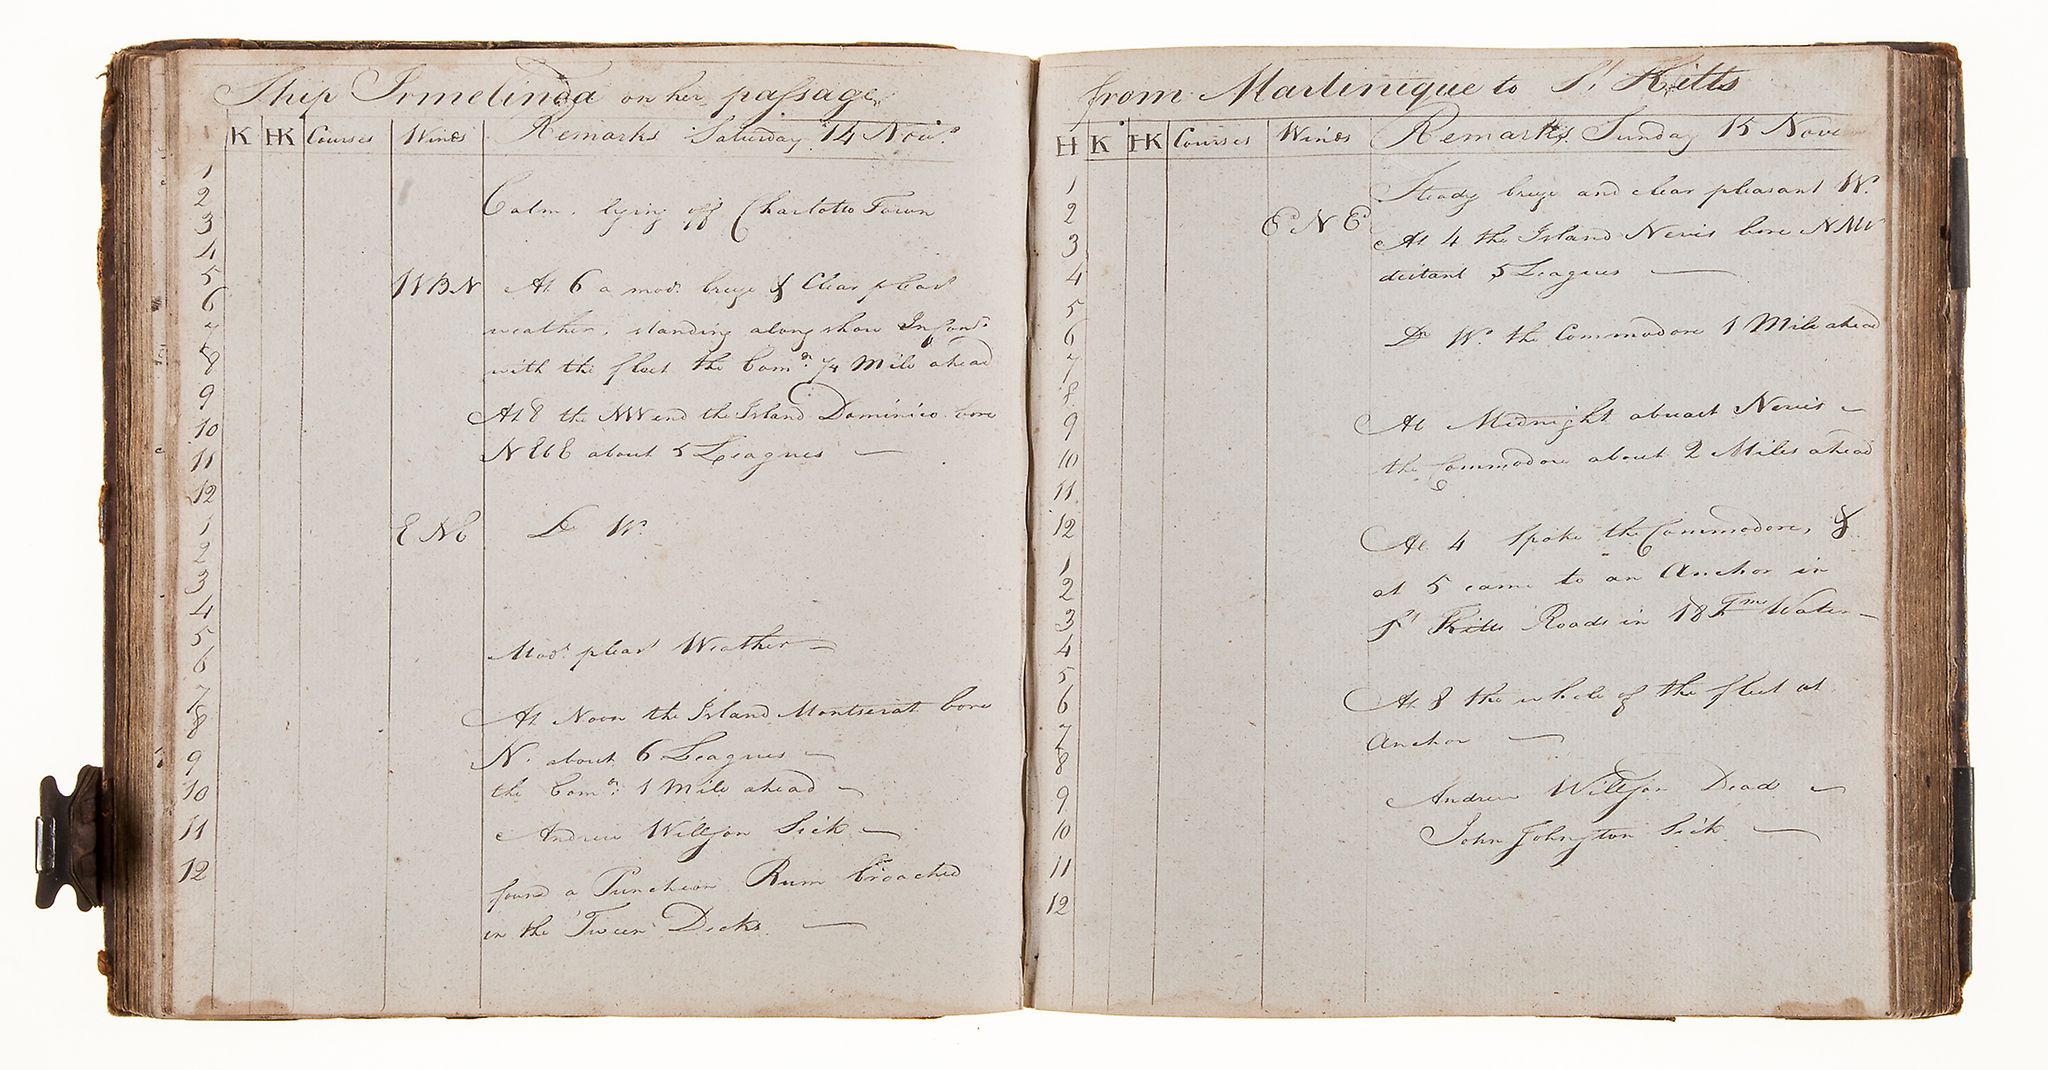 Ship Irmelinda on her passage
K HK Courses Winds Remarks Saturday 14 Novr.
1
2
Calm, lying off Charlotte Town
3
4
5
WBN At 6 a modt. breze & Clear pleast
6
7
weather, standing along shore
8
with the fleet the Comdr. 3/4 Mile ahead
9
At 8 the NW end the Island Dominico bore
10
NEbE about 5 Leagues —
11
12
1
E NE Do Wr.
2
3
4
5
Modt. pleast Weather —
6
7
8
At Noon the Island Montserat bore
9
N. about 6 Leagues —
10
the Comdr. 1 Mile ahead —
11
Andrew Willson Sick —
12
found a Puncheon Rum broached
in the 'Tween Decks —
from Martinique to St. Kitts
H K HK Courses Winds Remarks Sunday 15 Nove
1
Steady breze and clear pleasant Wr.
2
E N E
3
At 4 the Island Nevis bore NNW
4
distant 5 Leagues —
5
6
Do Wr. the Commodore 1 Mile ahead
7
8
9
At Midnight abreast Nevis —
10
the Commodore about 2 Miles ahead
11
12
At 4 Spoke the Commodore, &
1
2
at 5 came to an Anchor in
3
St Kitts Roads in 18 Fms Water —
4
5
6
At 8 the whole of the fleet at
7
Anchor —
8
9
Andrew Willson Dead —
10
John Johngton Sick —
11
12